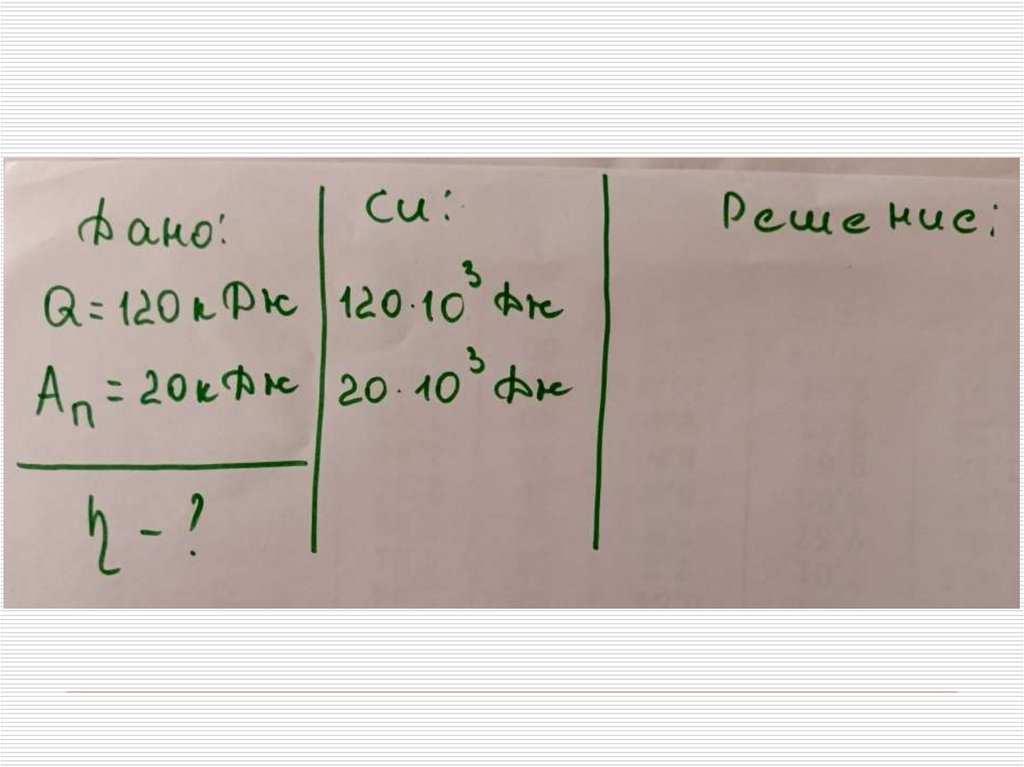 Дано:
Q = 120 кДж
Aп = 20 кДж
η - ?
СИ:
120·10³ Дж
20·10³ Дж
Решение: